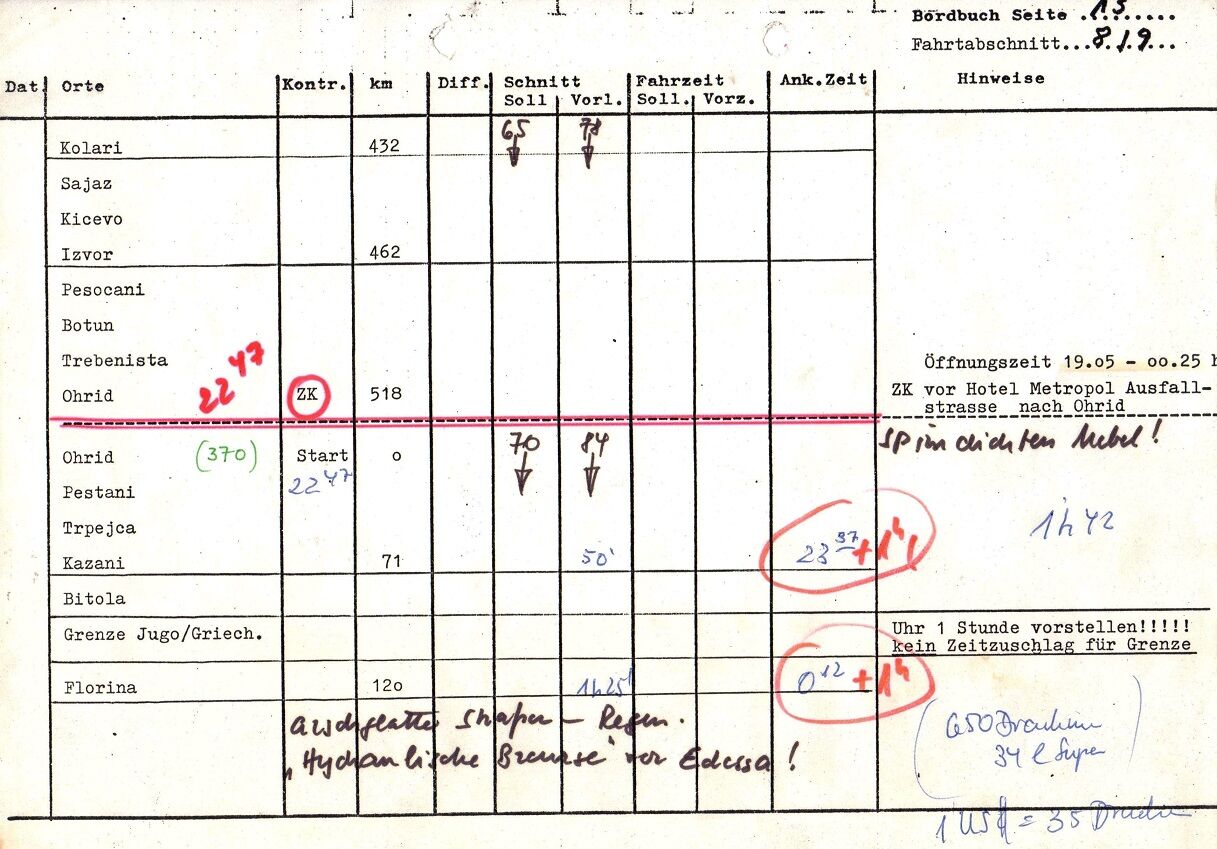 Bordbuch Seite .13......
Fahrtabschnitt...8./.9...
Dat. Orte Kontr. km Diff. Schnitt Fahrzeit Ank.Zeit Hinweise
Soll Vorl. Soll. Vorz.
65 78
Kolari 432
Sajaz
Kicevo
Izvor 462
Pesocani
Botun
Trebenista Öffnungszeit 19.o5 - oo.25 h
Ohrid 22 47 ZK 518 ZK vor Hotel Metropol Ausfall-
strasse nach Ohrid
70 84 SP im dichten Nebel!
Ohrid (370) Start o
Pestani 22 47
Trpejca 1h 42
Kazani 71 50' 23 37 +1h!
Bitola
Grenze Jugo/Griech. Uhr 1 Stunde vorstellen!!!!!
kein Zeitzuschlag für Grenze
Florina 12o 1h25' 0 12 +1h
Straßen – Regen.
650 Drachmen
„Hydraulische Bremse" vor Edessa!
34 l Super
1 US$ = 35